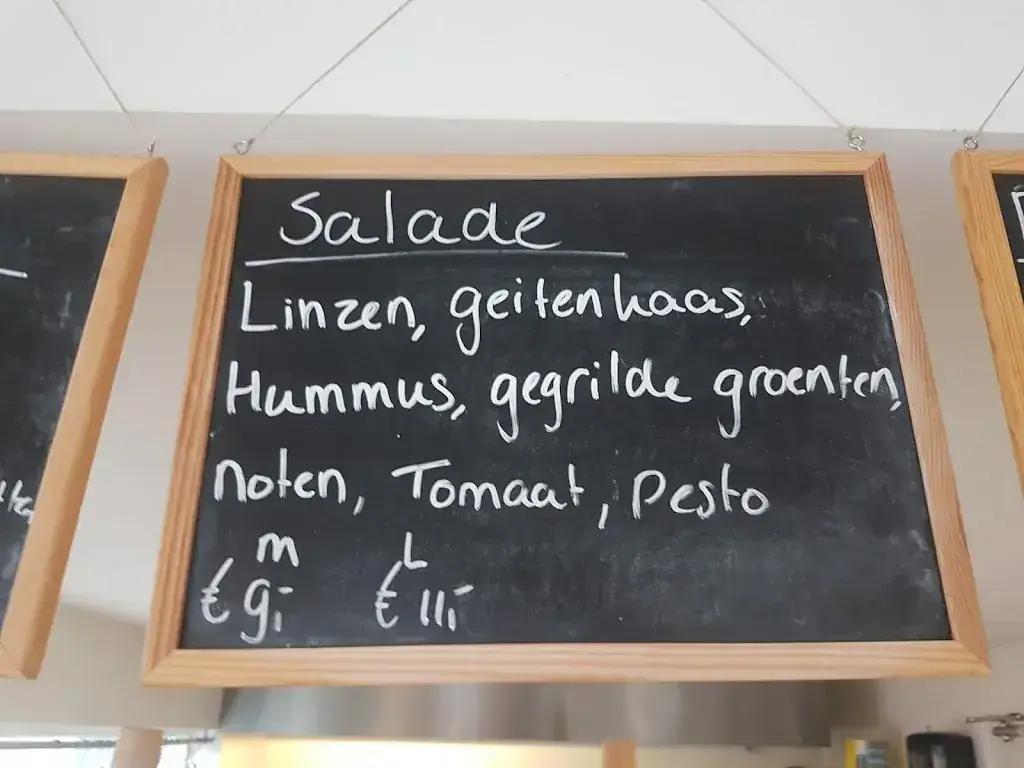 Salade
Linzen, geitenkaas,
Hummus, gegrilde groenten,
noten, Tomaat, Pesto
M L
€ 9,- € 11,-